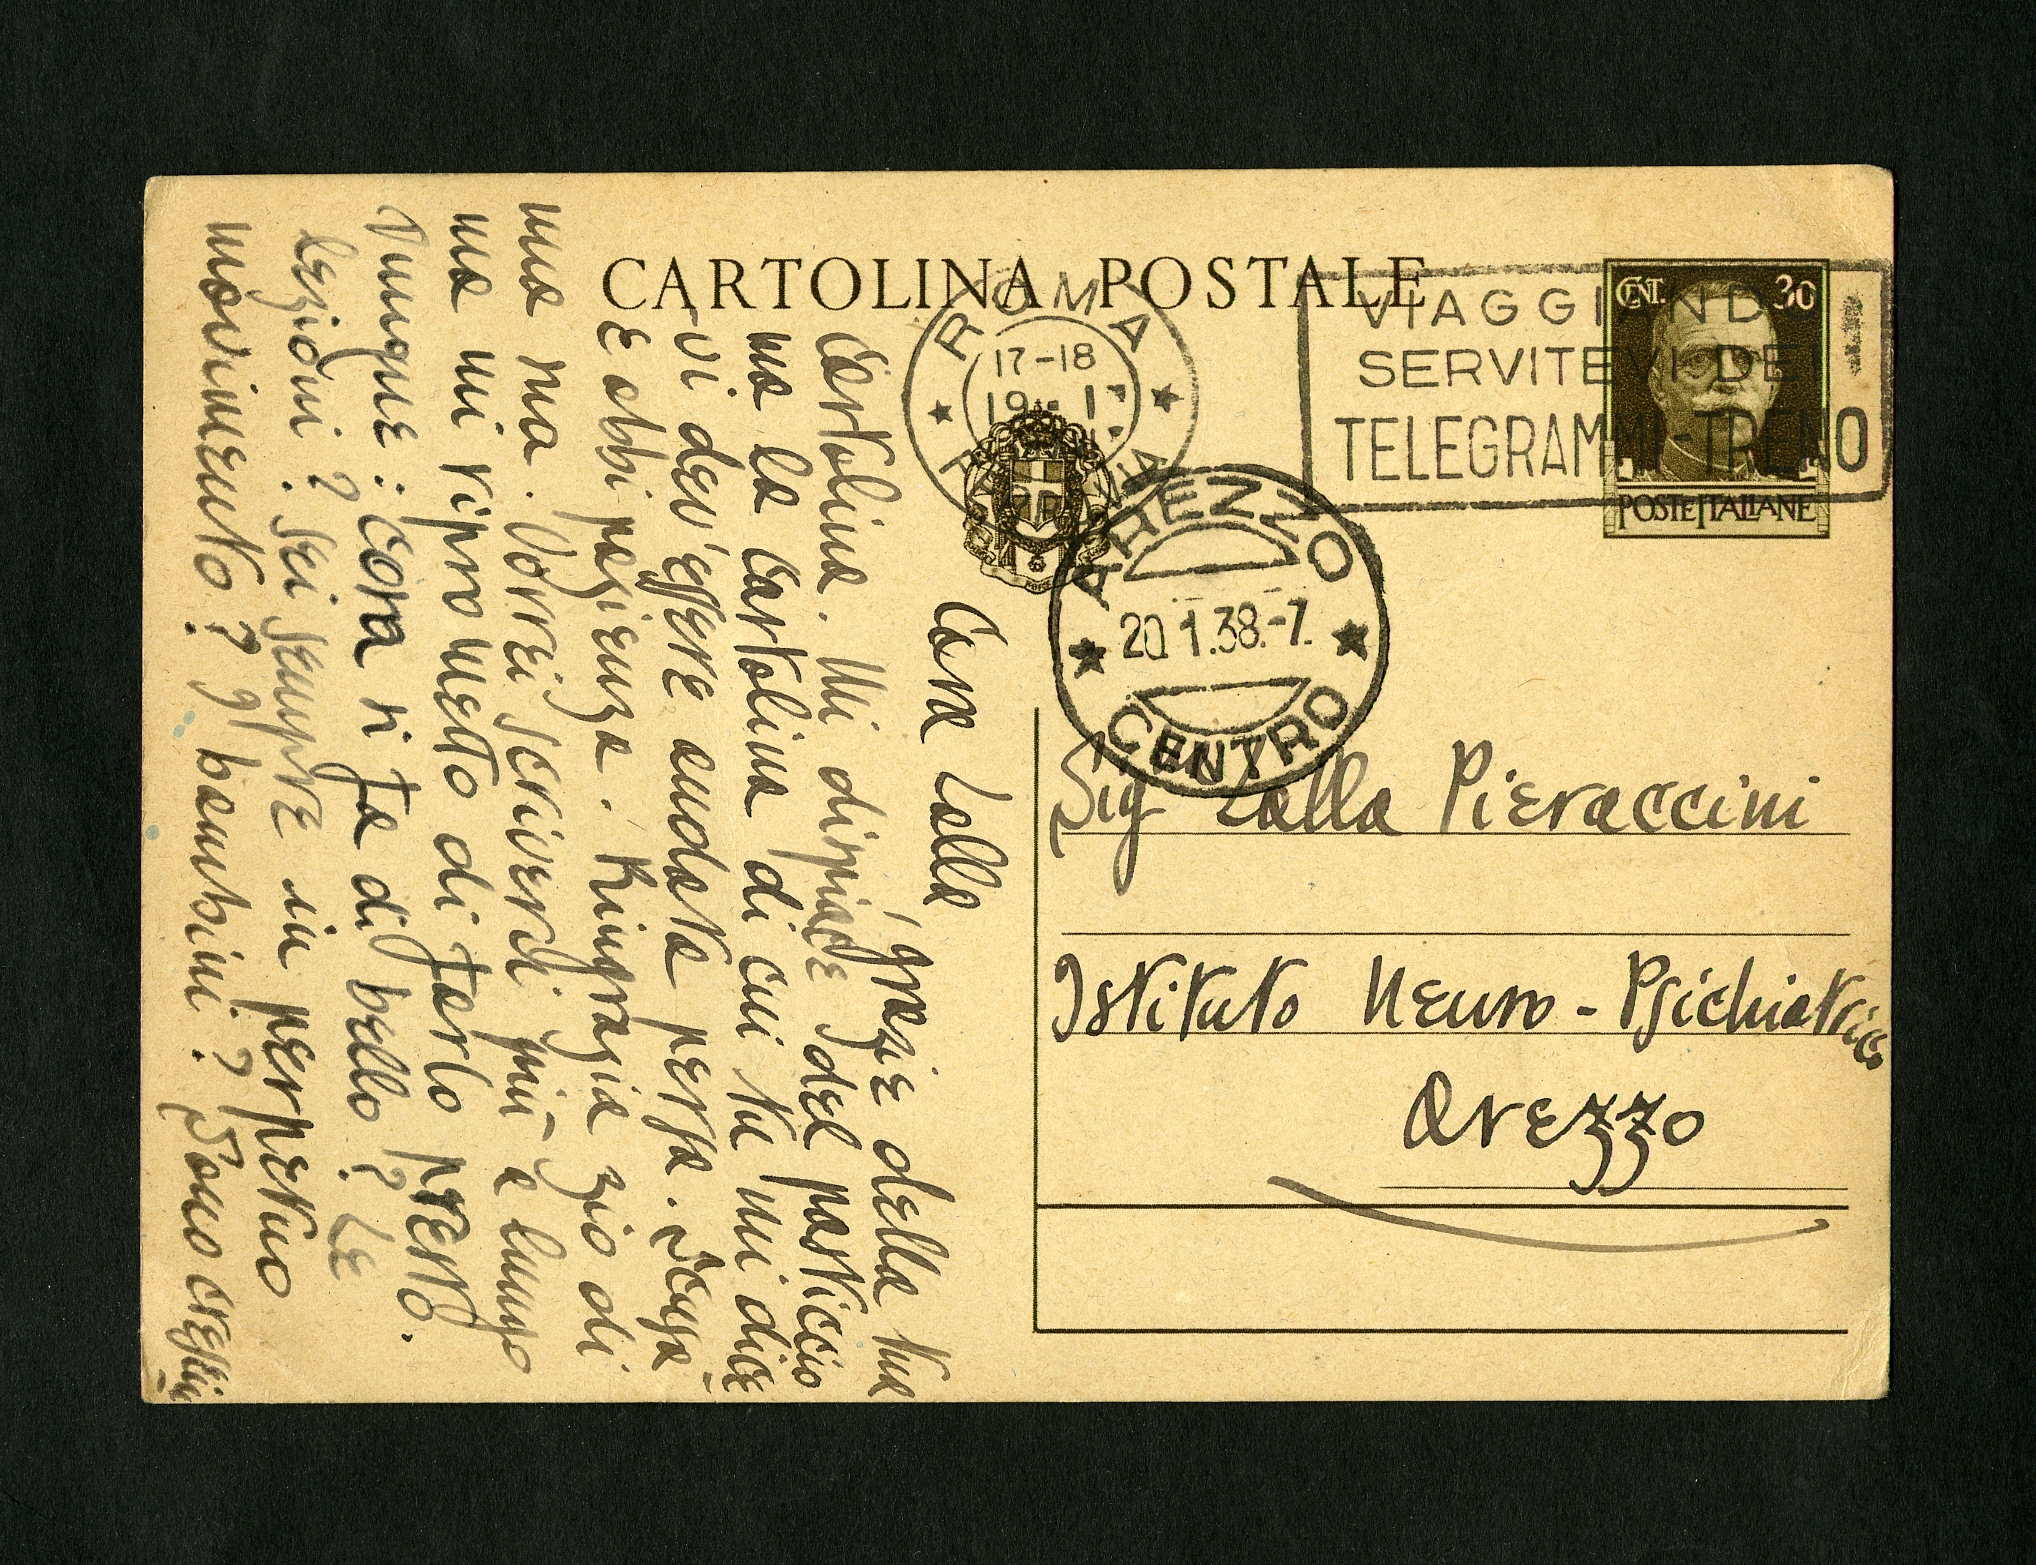 CARTOLINA POSTALE
ROMA
17-18
19 - 1
VIAGGIANDO
SERVITEVI DEI
TELEGRAMMI-TRENO
CENT. 30
POSTE ITALIANE
AREZZO
20.1.38.-7.
CENTRO
Sig Lalla Pieraccini
Istituto Neuro-Psichiatrico
Arezzo
Cara Lalla
, grazie della tua
cartolina. Mi dispiace del pasticcio
ma la cartolina di cui tu mi dice
vi dev'essere andata persa. Scusa-
e abbi pazienza. Ringrazia zio di
una ma. Vorrei scriverti più a lungo
ma mi riprometto di farlo presto.
Dunque: cosa si fa di bello? Le
lezioni? Sei sempre in perpetuo
movimento? I bambini? Sono cresciu-